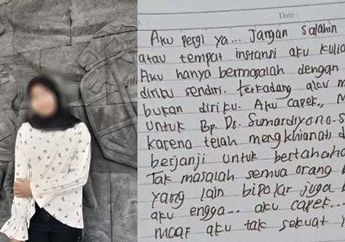 Date
Aku pergi ya... Jangan salahin
atau tempat instansi aku kulia
Aku hanya bermasalah dengan
diriku sendiri. Terkadang atau m
bukan diriku. Aku capek,,
untuk Bp. Ds. Sumardiyono-s
karena telah mengkhianati d
berjanji untuk bertahaha
Tak masalah semua orang b
yang lain bipolar juga b
aku engga... aku capek...
maaf aku tak sekuat